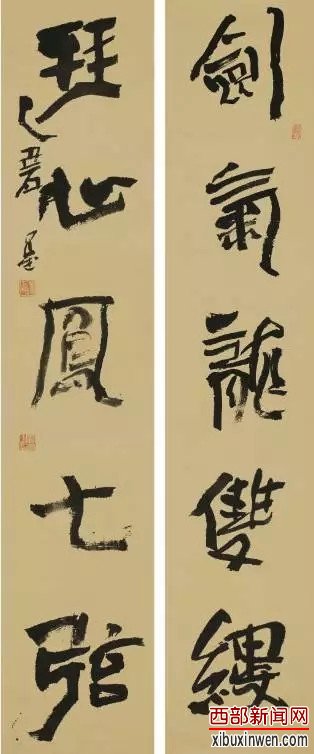 劍氣龍雙縷
琴心鳳七弦
西部新闻网
xibuxinwen.com